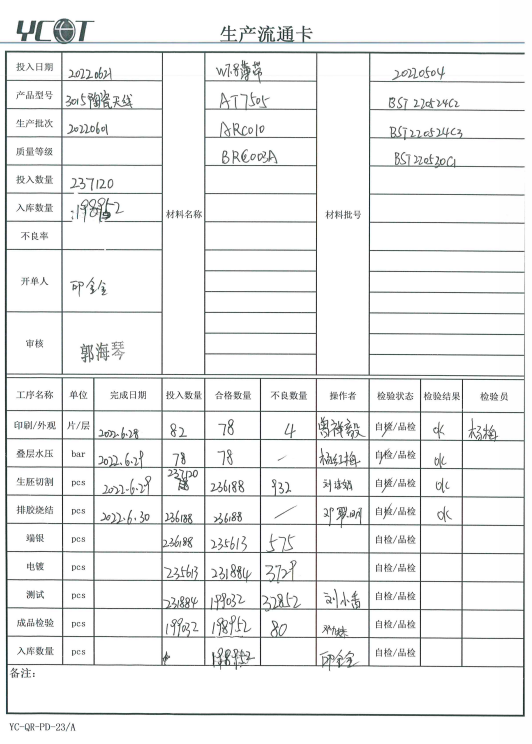 YCOT
生产流通卡
投入日期 20220621 20220504
产品型号 3015陶瓷天线 AT7505 BST220524C2
生产批次 20220601 ARC010 BST220524C3
质量等级 BRC002A BST220520C1
投入数量 237120
入库数量 198952 材料名称 材料批号
不良率
开单人 邱金金
审核 郭海琴
工序名称 单位 完成日期 投入数量 合格数量 不良数量 操作者 检验状态 检验结果 检验员
印刷/外观 片/层 2022.6.28 82 78 4 自检/品检 ok 杨梅
叠层水压 bar 2022.6.29 78 78 / 自检/品检 ok
生胚切割 pcs 2022.6.29 237120 236188 932 自检/品检 ok
排胶烧结 pcs 2022.6.30 236188 236188 / 自检/品检 ok
端银 pcs 236188 235613 575 自检/品检
电镀 pcs 235613 231884 3729 自检/品检
测试 pcs 231884 199032 32852 刘小番 自检/品检
成品检验 pcs 199032 198952 80 自检/品检
入库数量 pcs 198952 邱金金 自检/品检
备注：
YC-QR-PD-23/A